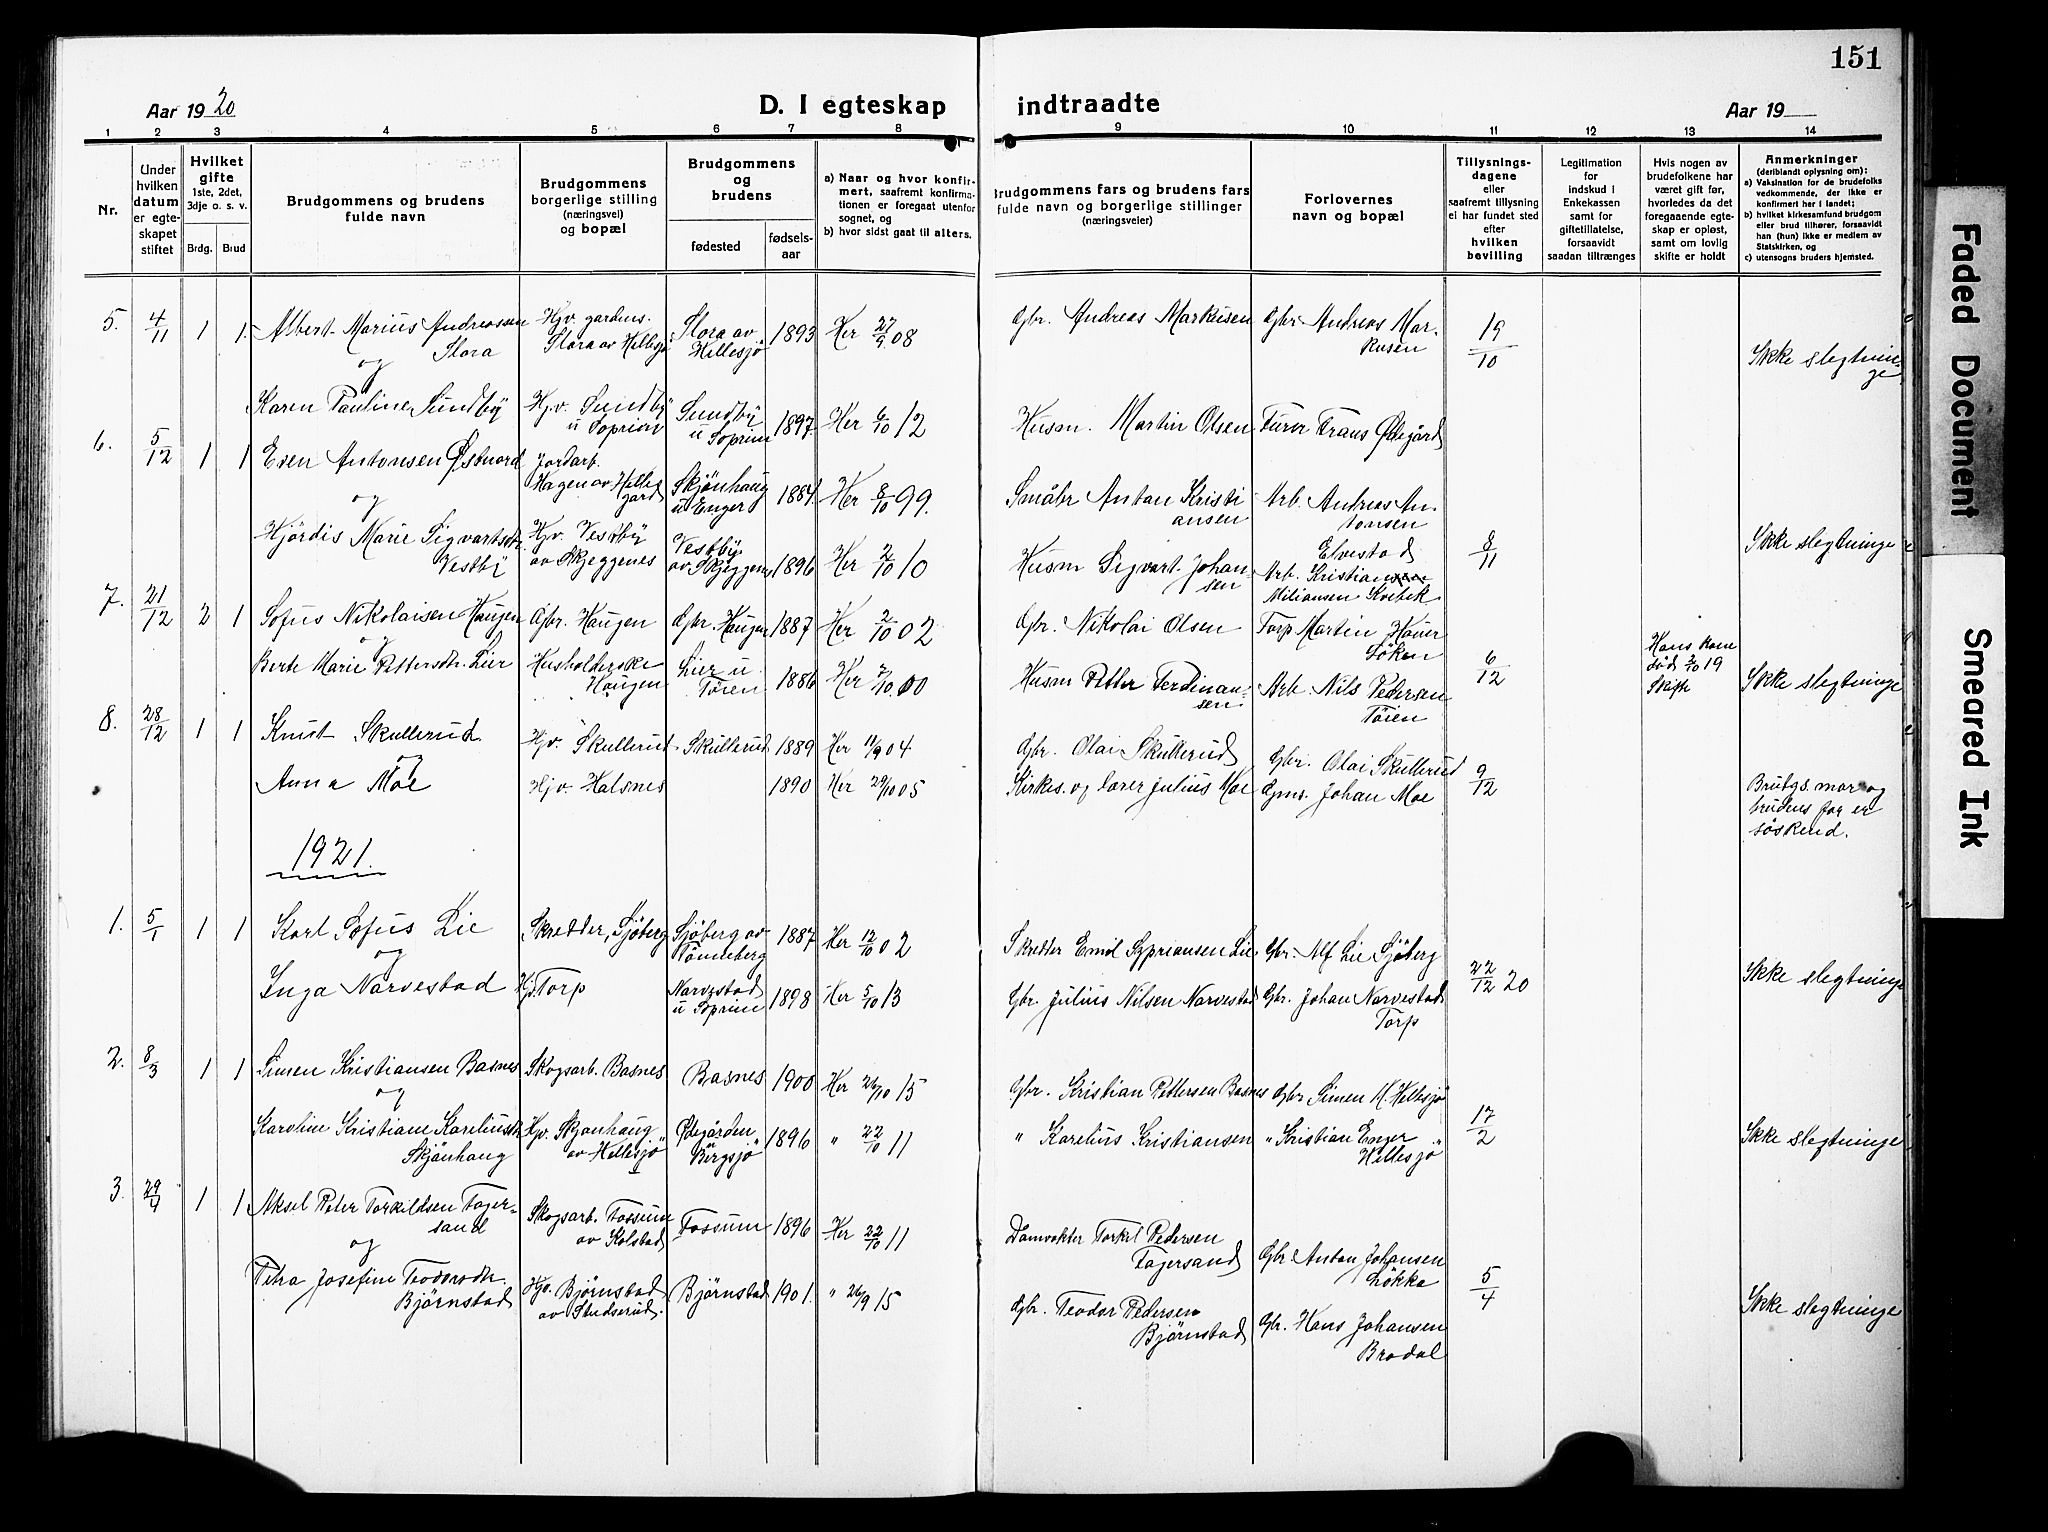 151
Aar 1920
D. I egteskap indtraadte
Aar 19
1 2 3 4 5 6 7 8 9 10 11 12 13 14
Nr.
Under hvilken datum er egteskapet stiftet
Hvilket gifte
1ste, 2det, 3dje o. s. v.
Brdg. Brud
Brudgommens og brudens fulde navn
Brudgommens borgerlige stilling (næringsvei) og bopæl
Brudgommens og brudens
fødested
fødselsaar
a) Naar og hvor konfirmert, saafremt konfirmationen er foregaat utenfor sognet, og
b) hvor sidst gaat til alters.
Brudgommens fars og brudens fars fulde navn og borgerlige stillinger (næringsveier)
Forlovernes navn og bopæl
Tillysningsdagene eller saafremt tillysning ei har fundet sted efter hvilken bevilling
Legitimation for indskud i Enkekassen samt for giftetillatelse, forsaavidt saadan tiltrænges
Hvis nogen av brudefolkene har været gift før, hvorledes da det foregaaende egteskap er opløst, samt om lovlig skifte er holdt
Anmerkninger (deriblandt oplysning om):
a) Vaksination for de brudefolks vedkommende, der ikke er konfirmert her i landet;
b) hvilket kirkesamfund brudgom eller brud tilhører, forsaavidt han (hun) ikke er medlem av Statskirken, og
c) utensogns bruders hjemsted.
5. 4/11 1 1 Albert Marius Andreassen Slora Hjv. gardens. Slora av Hellesjø Slora av Hellesjø 1893 Her 27/9 08 Gbr. Andreas Markusen Gbr. Andreas Markusen 19/10 Ikke slegtninge
og
Karen Pauline Sundby Hjv. Sundby u Soprim Sundby u Soprim 1897 Her 6/10 12 Husm. Martin Olsen Furer Frans Ødegård
6. 5/12 1 1 Even Antonsen Østnord Jordarb. Hagen av Hellegard Skjønhaug u Enger 1884 Her 8/10 99. Småbr Anton Kristiansen Arb. Andreas Antonsen Elvestad 8/11 Ikke slegtninge
og
Hjördis Marie Sigvartsdtr. Vestby Hjv. Vestby av Skjeggenes Vestby av Skjeggenes 1896 Her 2/10 10 Husm Sigvart Johansen Arb. Kristian Miliansen Krebek
7. 21/12 2 1 Sofus Nikolaisen Haugen Gbr. Haugen Gbr. Haugen 1887 Her 2/10 02 Gbr. Nikolai Olsen Torp Martin Hauer Löken 6/12 Hans kone død 2/10 19 Skifte Ikke slegtninge
og
Berte Marie Pettersdtr. Lier Husholderske Haugen Lier u. Töien 1886 Her 7/10 00 Husm Petter Ferdinansen Arb. Nils Pedersen Töien
8. 28/12 1 1 Knut Skullerud Hjv. Skullerud Skullerud 1889 Her 11/9 04 Gbr. Olai Skullerud Gbr. Olai Skullerud 9/12
og
Anna Moe Hjv. Halsnes 1890 Her 29/10 05 Kirkes. og lærer Julius Moe Gms. Johan Moe Brudgs. mor og brudens far er söskend.
1921.
1. 5/1 1 1 Karl Sofus Lie Skredder, Sjöberg Sjöberg av Tönneberg 1887 Her 12/10 02 Skredder Emil Sypriansen Lie Gbr. Alf Lie Sjöberg 22/12 20 Ikke slegtninge
og
Inga Narvestad Hjv Torp Narvestad u Soprim 1898 Her 5/10 13 Gbr. Julius Nilsen Narvestad Gbr. Johan Narvestad Torp
2. 8/3 1 1 Simen Kristiansen Basnes Skogsarb. Basnes Basnes 1900 Her 26/10 15 Gbr. Kristian Pettersen Basnes Gbr Simen M. Hellesjø 17/2 Ikke slegtninge
og
Karoline Kristiane Kareliusdtr. Skjönhaug Hjv. Skjønhaug av Hellesjø Ødegården Bergsjø 1896 " 22/10 11 " Karelius Kristiansen " Kristian Enger Hellesjø "
3. 29/4 1 1 Aksel Peter Torkildsen Fagersand Skogsarb. Fossum av Kolstad Fossum 1896 Her 22/10 11 Damvokter Torkel Pedersen Fagersand Gbr. Anton Johansen Løkka 5/4 Ikke slegtninge
og
Petra Josefine Teodorsdtr. Bjørnstad Hjv. Bjørnstad av Studserud. Bjørnstad 1901. " 26/9 15 Gbr. Teodor Pedersen Bjørnstad Gbr. Hans Johansen Brodal
Faded Document
Smeared Ink